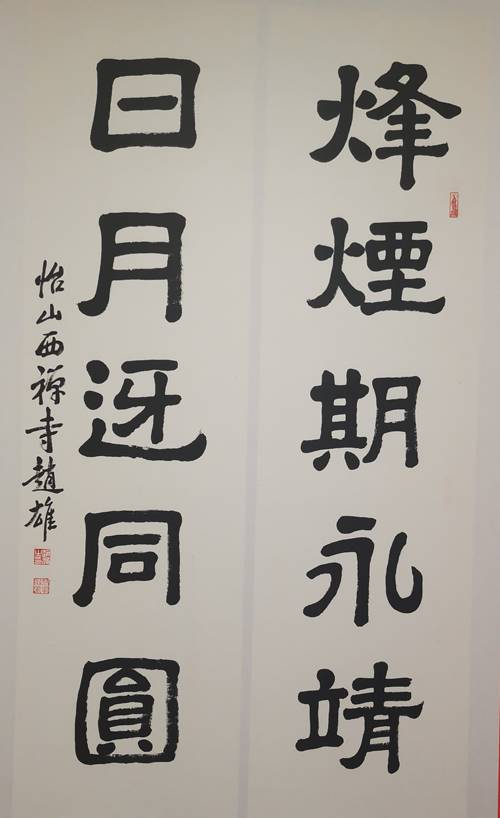 烽煙期永靖
日月迓同圓
怡山西禪寺趙雄